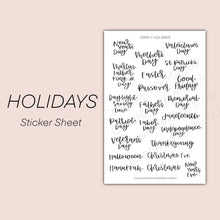 HOLIDAYS
Sticker Sheet
New
Year's
Day
Mother's
Day
Valentine's
Day
Martin
Luther
King Jr
Day
Easter
Passover
Good
Friday
Daylight
Saving
Time
Father's
Day
Memorial
Day
Juneteenth
Patriot
Day
Labor
Day
Independence
Day
Veteran's
Day
Thanksgiving
Halloween
Christmas Eve
Hanukkah
Christmas
New
Year's
Eve